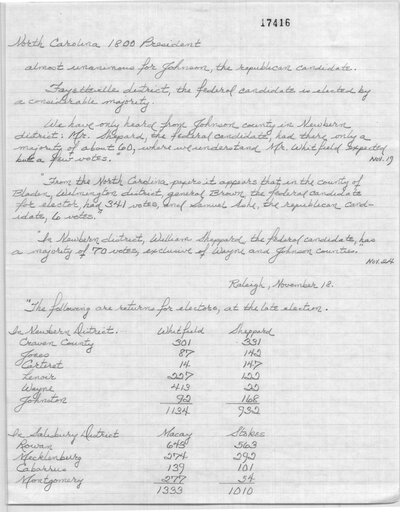 17416
North Carolina 1800 President
almost unanimous for Johnson, the republican candidate.
Fayetteville district, the federal candidate is elected by
a considerable majority.
We have only heard from Johnson county in Newbern
district: Mr. Shepard, the federal candidate, had there only a
majority of about 60, where we understand Mr. Whitfield expected
but a few votes."
Nov. 19
"From the North Carolina papers it appears that in the county of
Bladen, Welmington district, general Brown, the federal candidate
for elector, had 341 votes, and Samuel Ashe, the republican cand-
idate, 6 votes."
"In Newbern district, William Sheppard, the federal candidate, has
a majority of 70 votes, exclusive of Wayne and Johnson counties."
Nov. 24
Raleigh, November 18.
"The following are returns for electors, at the late election.
In Newbern District. Whitfield Sheppard
Craven County 301 331
Jones 87 142
Carteret 14 147
Lenoir 227 122
Wayne 413 22
Johnston 92 168
1134 932
In Salisbury District Macay Stokes
Rowan 643 563
Mecklenburg 274 292
Cabarrus 139 101
Montgomery 277 54
1333 1010